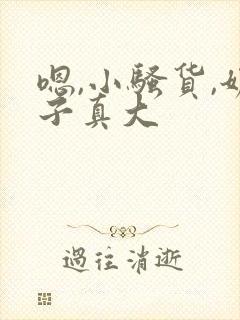 嗯,小骚货,
子真大
过往消逝